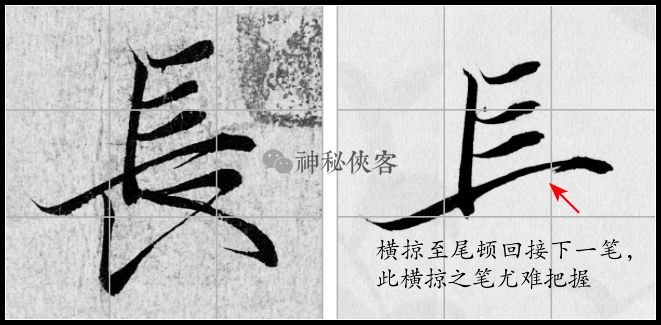 長
神秘俠客
横掠至尾顿回接下一笔，
此横掠之笔尤难把握